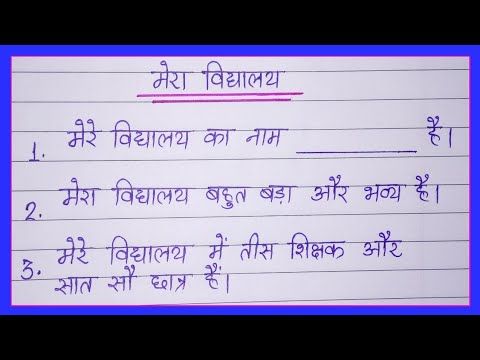 मेरा विद्यालय
1. मेरे विद्यालय का नाम __________ है।
2. मेरा विद्यालय बहुत बड़ा और भव्य है।
3. मेरे विद्यालय में तीस शिक्षक और
सात सौ छात्र हैं।